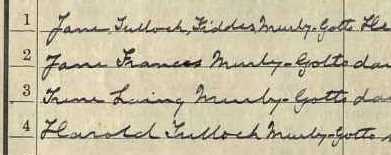 1 Jane Tulloch Fiddes Murby-Gotto He
2 Jane Frances Murby-Gotto dau
3 Irene Laing Murby-Gotto dau
4 Harold Tulloch Murby-Gotto s